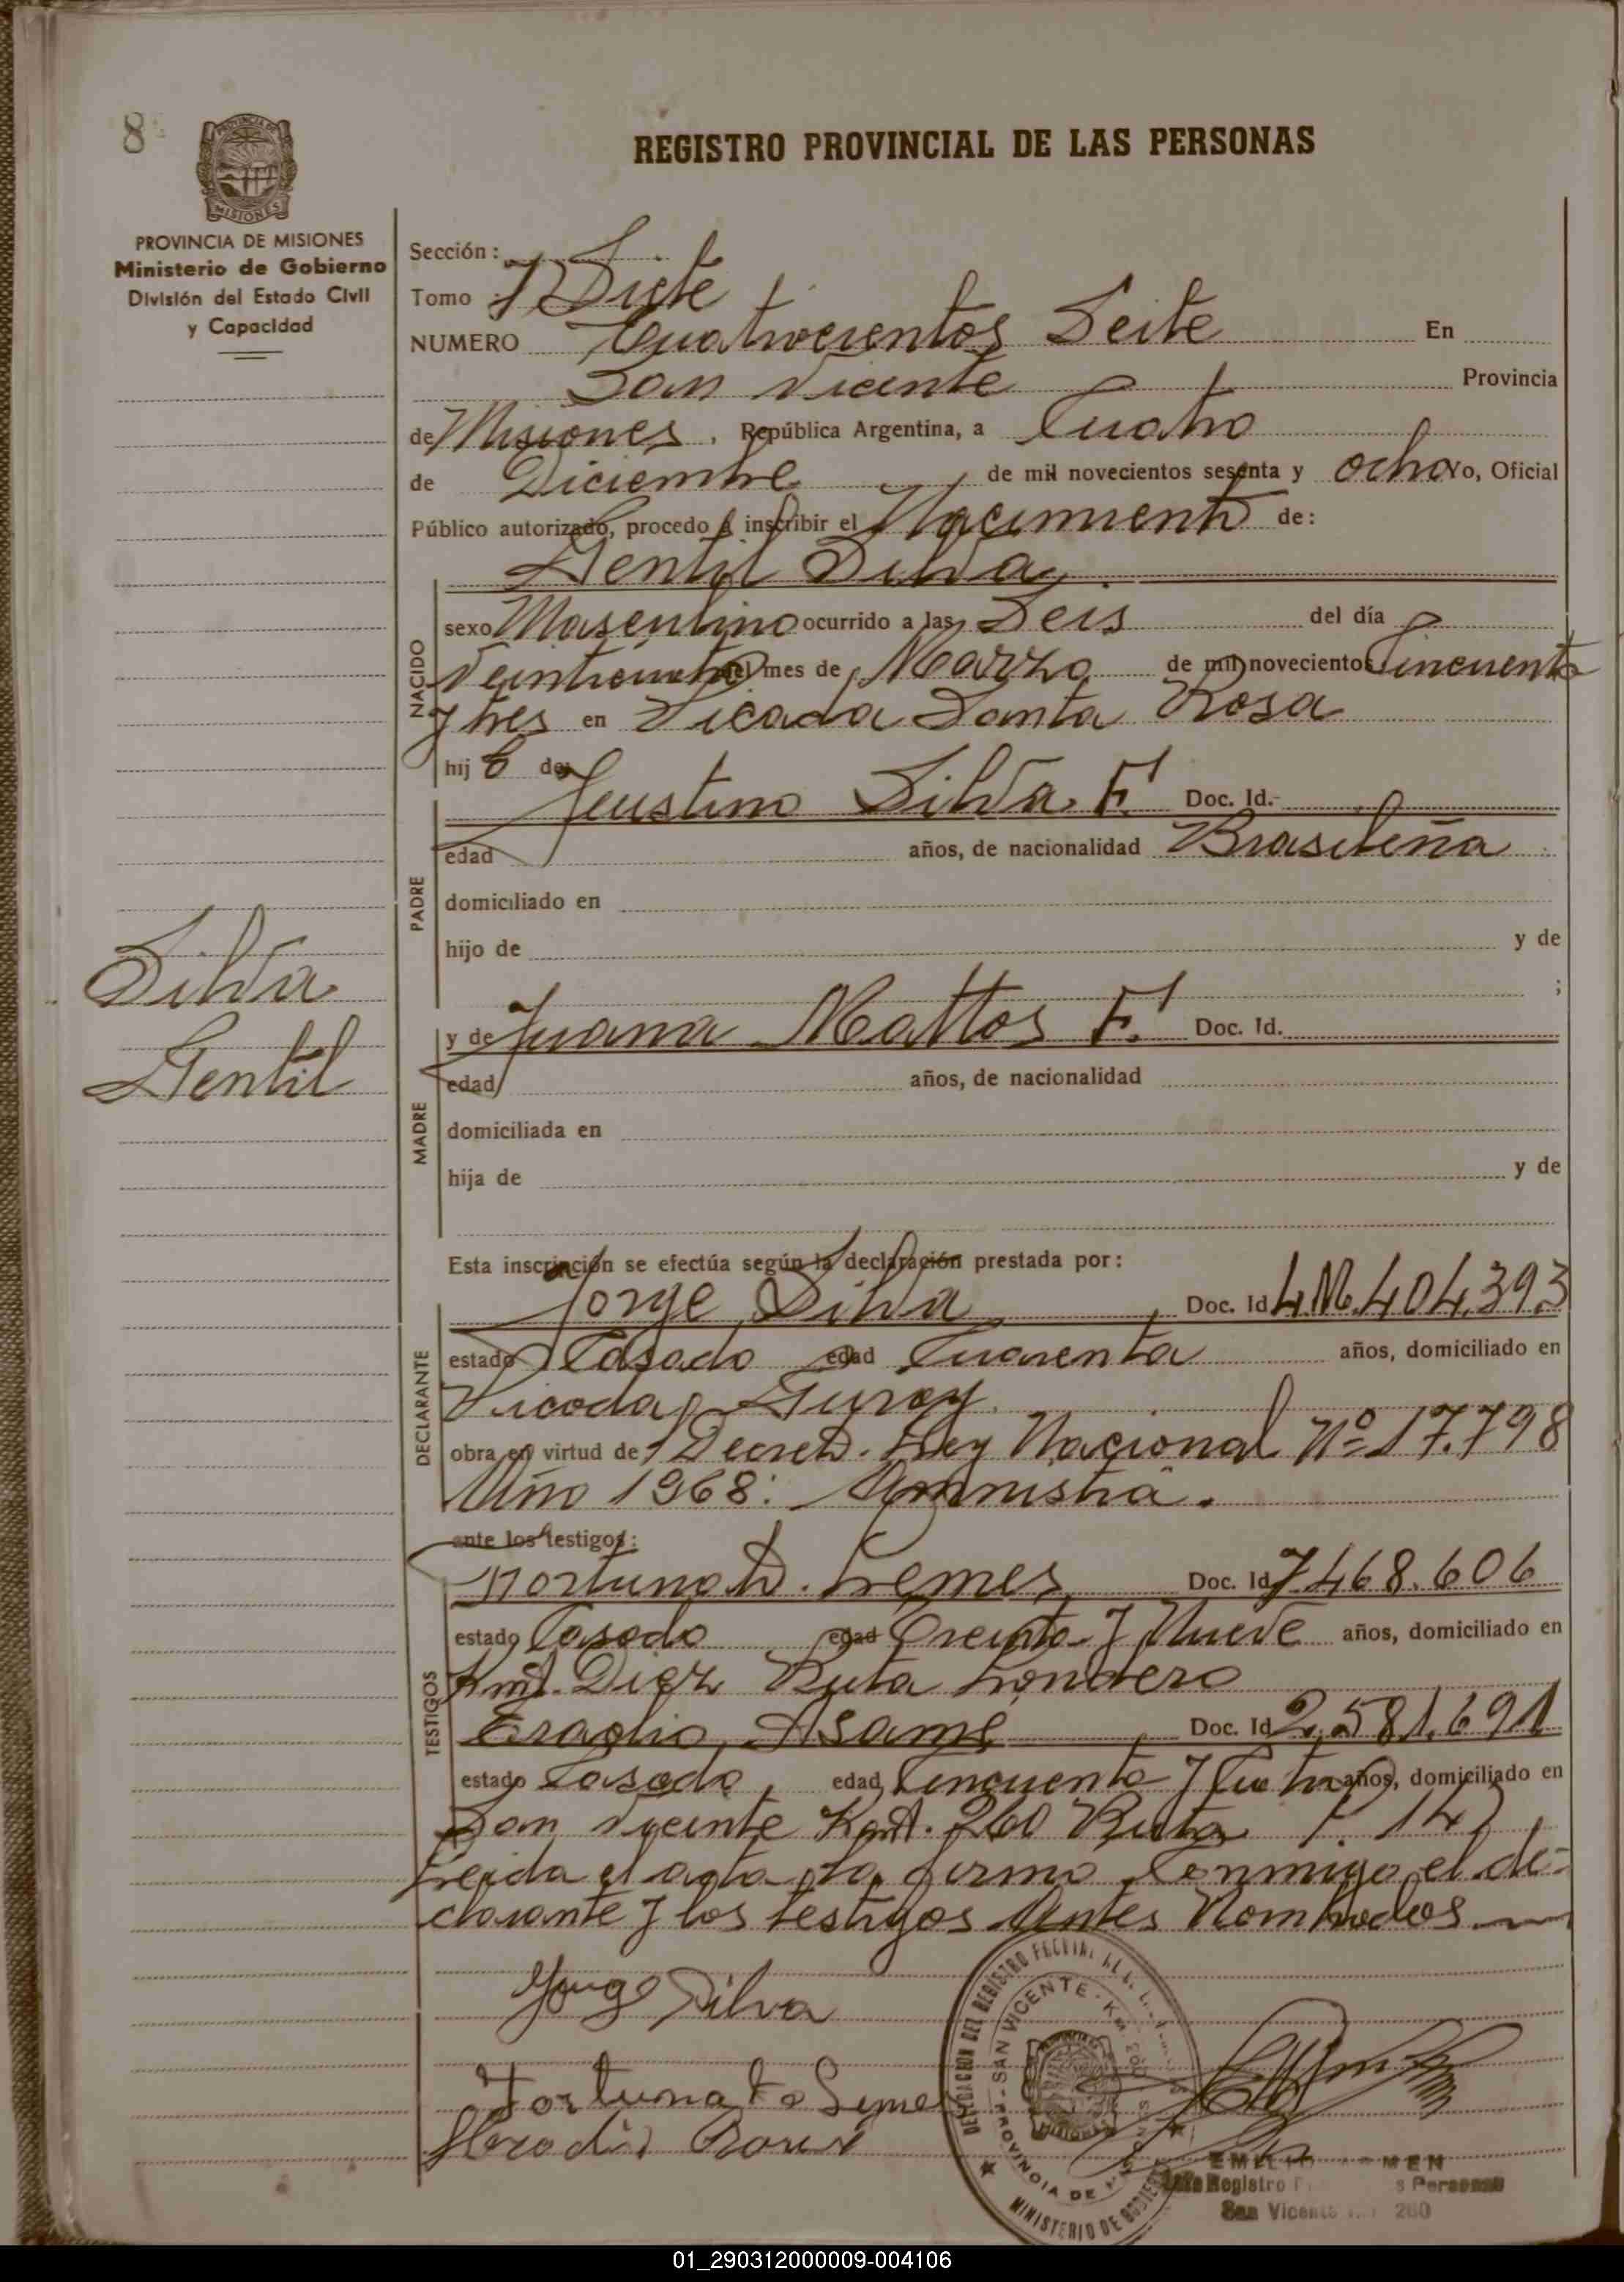 8
PROVINCIA DE
MISIONES
PROVINCIA DE MISIONES
Ministerio de Gobierno
División del Estado Civil
y Capacidad
REGISTRO PROVINCIAL DE LAS PERSONAS
Sección:
Tomo Siete
NUMERO Cuatrocientos Seite En
San Vicente Provincia
de Misiones, República Argentina, a Cuatro
de Diciembre de mil novecientos sesenta y ocho Yo, Oficial
Público autorizado, procedo a inscribir el Nacimiento de:
Gentil Silva
NACIDO
sexo Masculino ocurrido a las Seis del día
del mes de Marzo de mil novecientos Cincuenta
y tres en Picada Santa Rosa
hijo de
PADRE
Silva F. Doc. Id.
edad años, de nacionalidad Brasileña
domiciliado en
hijo de y de
;
Silva
Gentil
MADRE
y de Juana Mattos F. Doc. Id.
edad años, de nacionalidad
domiciliada en
hija de y de
Esta inscripción se efectúa según la declaración prestada por:
DECLARANTE
Jorge Silva, Doc. Id L.M. 404.393
estado Casado edad Cuarenta años, domiciliado en
Picada
obra en virtud de Decreto. Ley Nacional Nº 17.798
Año 1968: Amnistia.
ante los testigos:
TESTIGOS
Fortunato. Lemes Doc. Id 7468.606
estado Casado edad Treinta y Nueve años, domiciliado en
Kmt. Diez Ruta Londero
Doc. Id 2,581.691
estado Casado, edad Cincuenta y años, domiciliado en
San Vicente Kmt. 260 Ruta P. 14
Leida el acta la firma Conmigo el de-
clarante y los testigos Antes Nombrados
Jorge Silva
Fortunato Leme
DELEGACION DEL REGISTRO
SAN VICENTE - Km
PROVINCIA DE
MINISTERIO DE GOBIERNO
MISIONES
Jefe Registro Personas
San Vicente 260
01_290312000009-004106